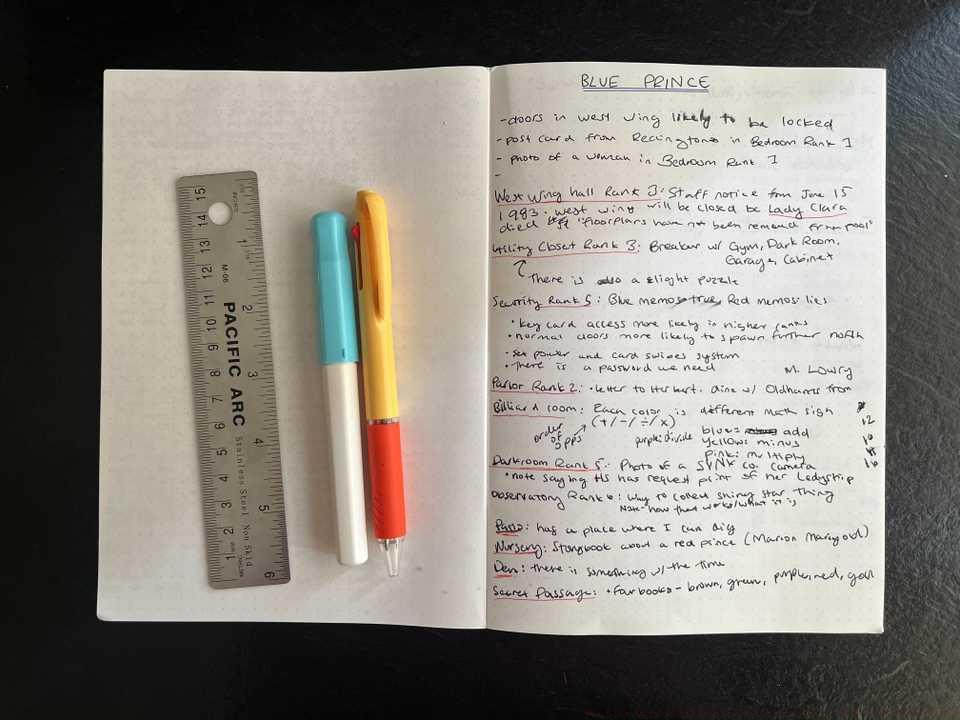 BLUE PRINCE
- doors in west wing likely to be locked
- post card from Reddington in Bedroom Rank 1
- photo of a woman in Bedroom Rank 1
-
West Wing hall Rank 3: Staff notice from June 15
1983. west wing will be closed bc Lady Clara
died "floorplans have not been removed from pool"
Utility Closet Rank 3: Breaker w/ Gym, Dark Room,
Garage, Cabinet
There is also a light puzzle
Security Rank 5: Blue memos true, Red memos: lies
• key card access more likely in higher ranks
• normal doors more likely to spawn further north
• set power and card swipes system
• There is a password we need
M. Lowry
Parlor Rank 2: • letter to Herbert. dine w/ Oldhams from
Billiard room: Each color is different math sign
(+/-/÷/x)
order of ops
purple: divide
blue = add
yellow: minus
pink: multiply
12
10
16
Darkroom Rank 5: Photo of a camera
• note saying HS has request print of her Ladyship
Observatory Rank 6: Way to collect shiny star thing
Note - how that works/what it is
Patio: has a place where I can dig
Nursery: Storybook about a red prince (Marion Marigold)
Den: there is something w/ the time
Secret Passage: • Four books - brown, green, purple, red, gold
PACIFIC ARC
Stainless Steel Non Skid
M-06
15 14 13 12 11 10 9 8 7 6 5 4 3 2 1
1 2 3 4 5 6